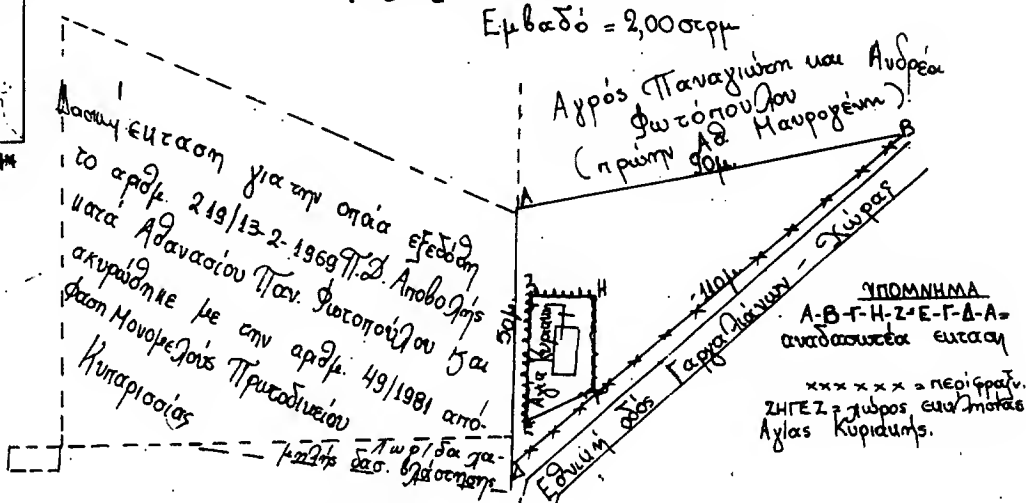 Εμβαδό = 2,00 στρμ
Αγρός Παναγιώτη και Ανδρέα
Φωτόπουλου
(πρώην Αθ Μαυρογένη)
90μ.
Β
Α
Δασική έκταση για την οποία εξεδόθη
το αριθμ. 219/13-2-1969 Π.Δ. Αποβολής
κατά Αθανασίου Παν. Φωτοπούλου και
ακυρώθηκε με την αριθμ. 49/1981 από-
φαση Μονομελούς Πρωτοδικείου
Κυπαρισσίας
50μ.
Η
Αγία Κυριακή
110μ
Εθνική οδός Γαργαλιάνων - Χώρας
Λωρίδα χα-
μηλής δασ. βλάστησης
Δ
ΥΠΟΜΝΗΜΑ
Α-Β-Γ-Η-Ζ-Ε-Γ-Δ-Α=
αναδασωτέα έκταση
xxx x x x = περίφραξη.
ΖΗΓΕΖ = χώρος εκκλησίας
Αγίας Κυριακής.